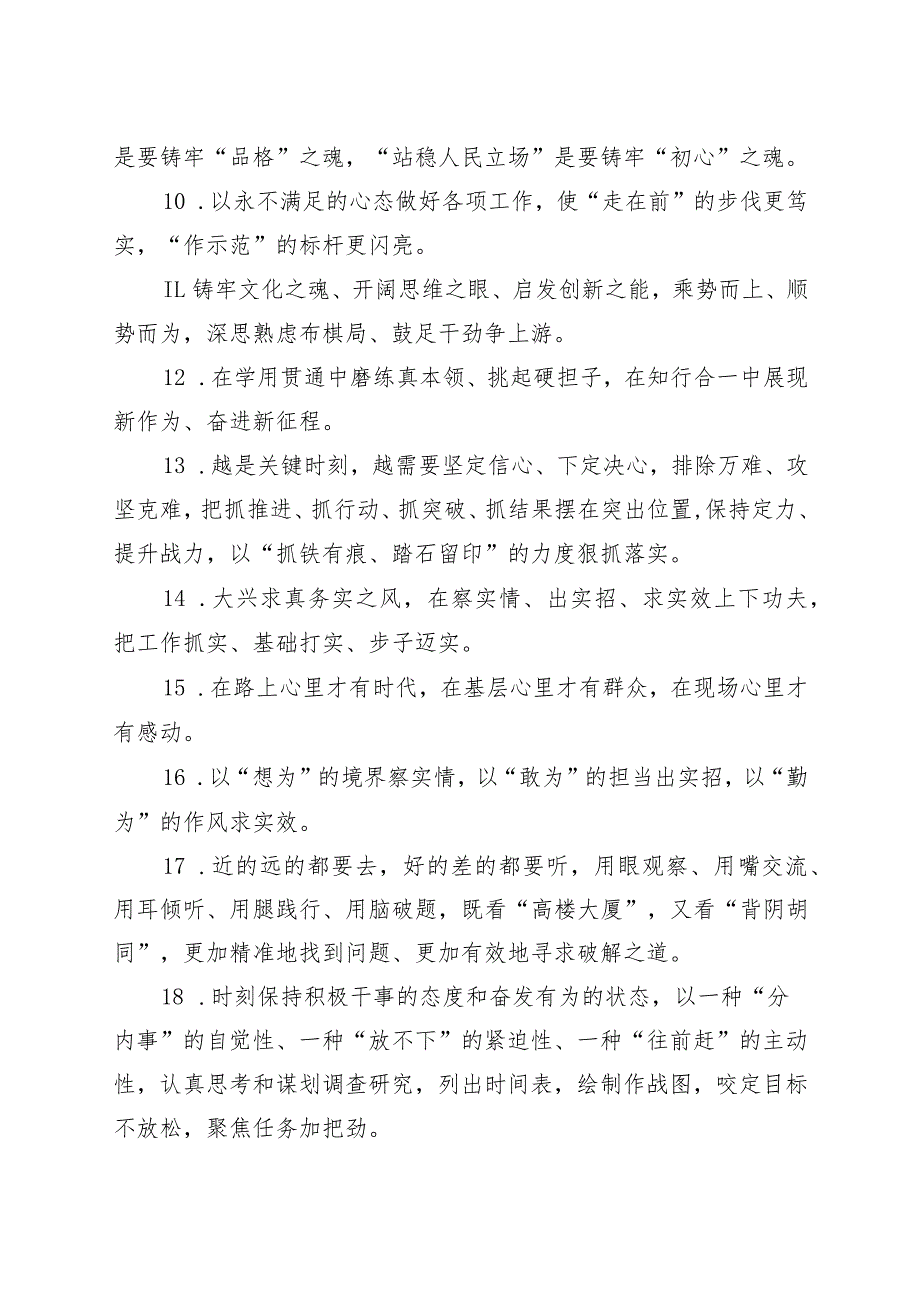 是要铸牢“品格”之魂，“站稳人民立场”是要铸牢“初心”之魂。
10 .以永不满足的心态做好各项工作，使“走在前”的步伐更笃
实，“作示范”的标杆更闪亮。
IL铸牢文化之魂、开阔思维之眼、启发创新之能，乘势而上、顺
势而为，深思熟虑布棋局、鼓足干劲争上游。
12 .在学用贯通中磨练真本领、挑起硬担子，在知行合一中展现
新作为、奋进新征程。
13 .越是关键时刻，越需要坚定信心、下定决心，排除万难、攻
坚克难，把抓推进、抓行动、抓突破、抓结果摆在突出位置,保持定力、
提升战力，以“抓铁有痕、踏石留印”的力度狠抓落实。
14 .大兴求真务实之风，在察实情、出实招、求实效上下功夫，
把工作抓实、基础打实、步子迈实。
15 .在路上心里才有时代，在基层心里才有群众，在现场心里才
有感动。
16 .以“想为”的境界察实情，以“敢为”的担当出实招，以“勤
为”的作风求实效。
17 .近的远的都要去，好的差的都要听，用眼观察、用嘴交流、
用耳倾听、用腿践行、用脑破题，既看“高楼大厦”，又看“背阴胡
同”，更加精准地找到问题、更加有效地寻求破解之道。
18 .时刻保持积极干事的态度和奋发有为的状态，以一种“分
内事”的自觉性、一种“放不下”的紧迫性、一种“往前赶”的主动
性，认真思考和谋划调查研究，列出时间表，绘制作战图，咬定目标
不放松，聚焦任务加把劲。